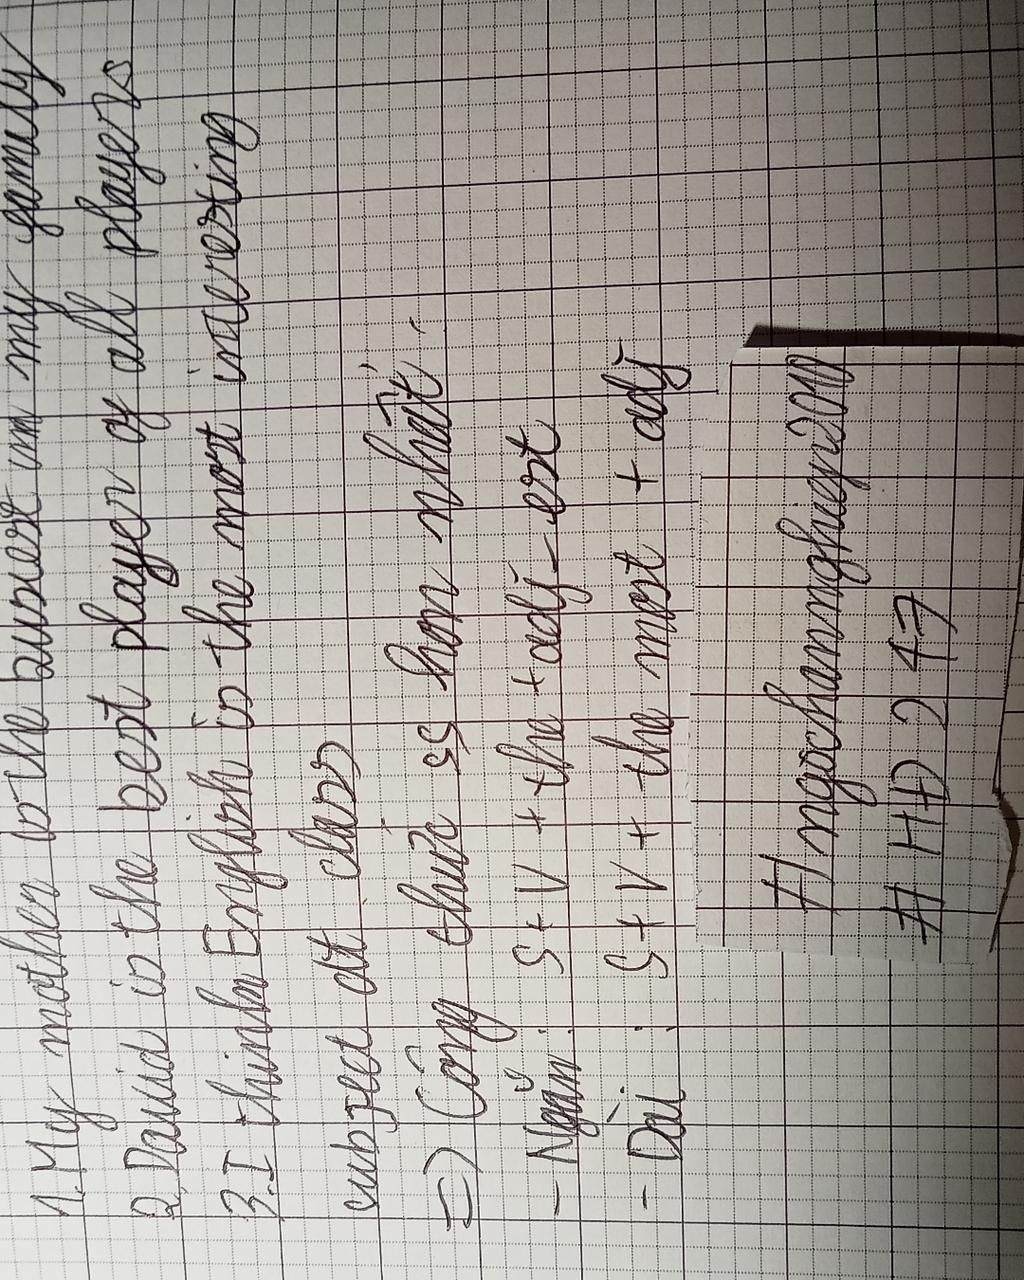 1. My mother is the busiest in my family
2. David is the best player of all players
3. I think English is the most interesting
subject at class
=> Công thức ss hơn nhất.
- Ngắn: S + V + the + adj - est
- Dài: S + V + the most + adj
#ngochannghiep2010
# HD 247